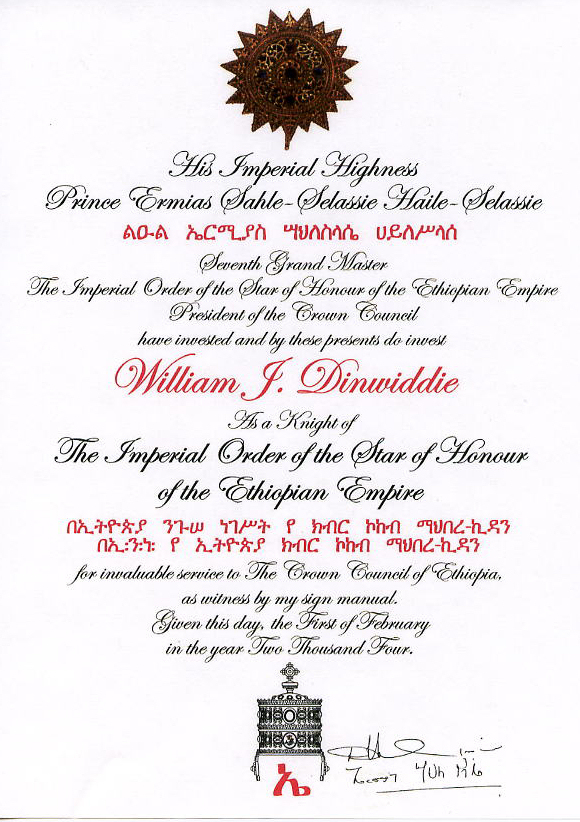 His Imperial Highness
Prince Ermias Sahle-Selassie Haile-Selassie
ልዑል ኤርሚያስ ሣህለስላሴ ሀይለሥላሰ
Seventh Grand Master
The Imperial Order of the Star of Honour of the Ethiopian Empire
President of the Crown Council
have invested and by these presents do invest
William J. Dinwiddie
As a Knight of
The Imperial Order of the Star of Honour
of the Ethiopian Empire
በኢትዮጵያ ንጉሠ ነገሥት የ ክብር ኮከብ ማህበረ-ኪዳን
በኢ፡ን፡ነ፡ የ ኢትዮጵያ ክብር ኮከብ ማህበረ-ኪዳን
for invaluable service to The Crown Council of Ethiopia,
as witness by my sign manual.
Given this day, the First of February
in the year Two Thousand Four.
ኤ